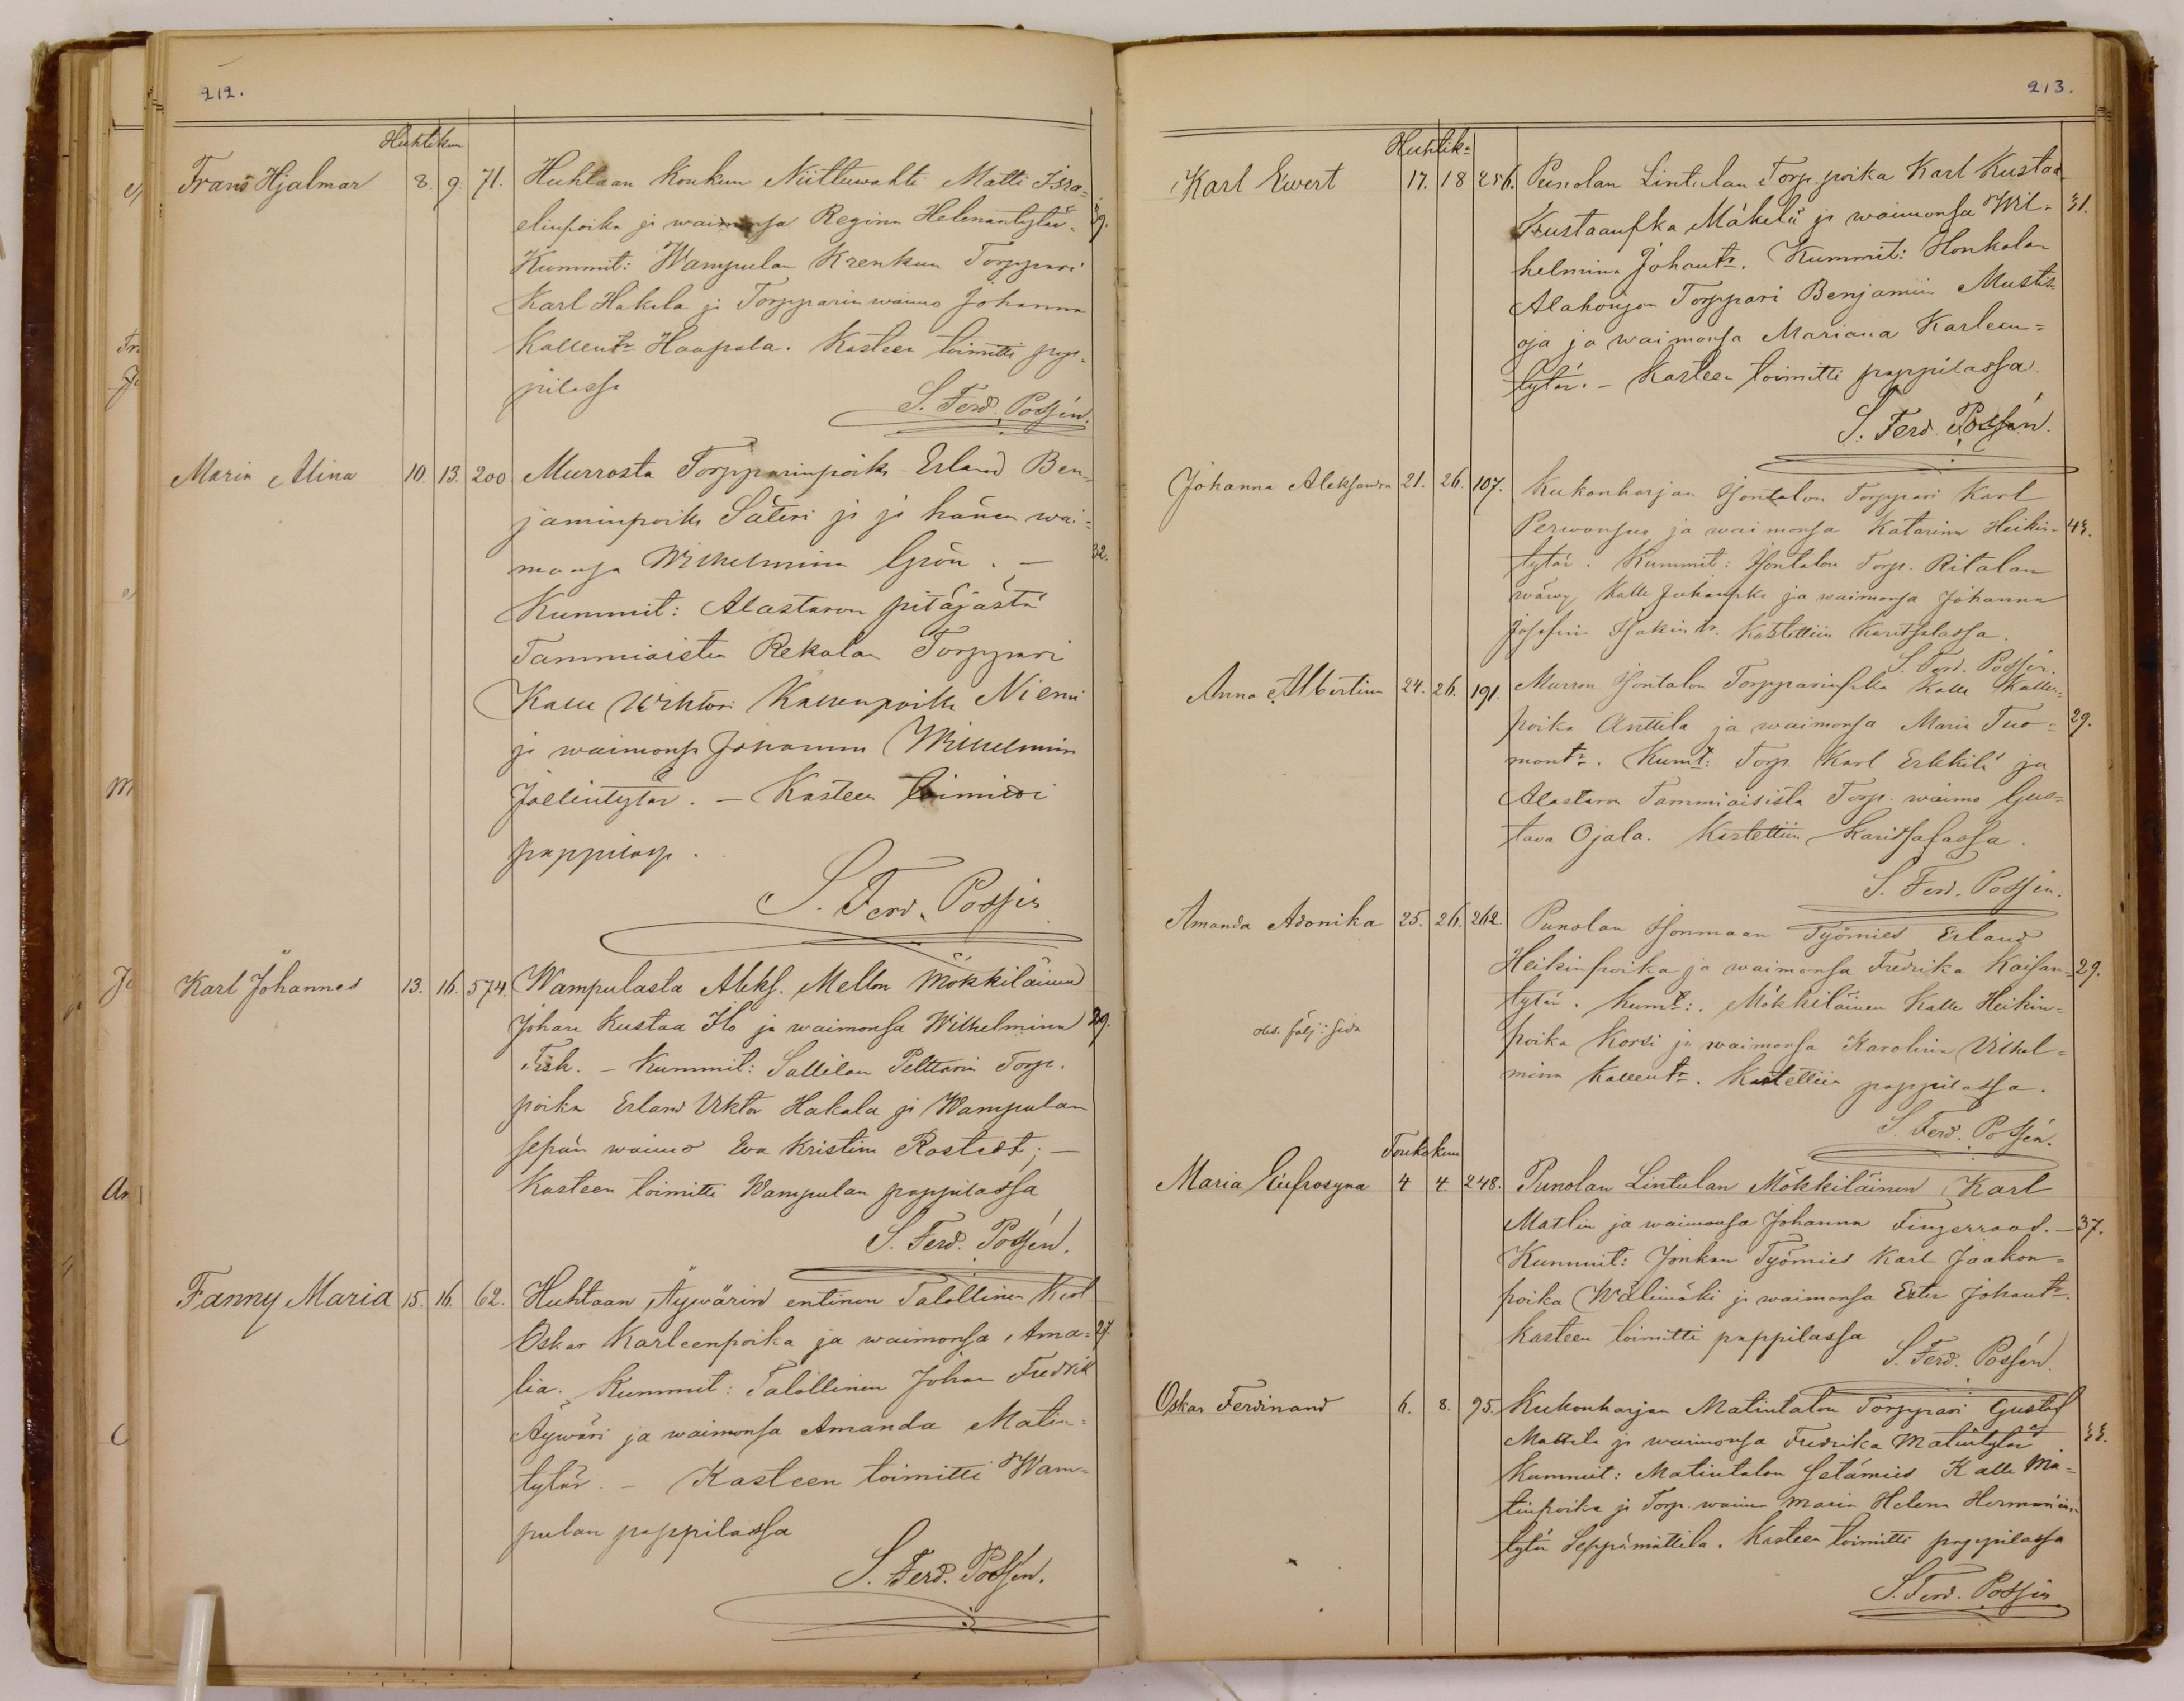 212.
Huhtikuu
Frans Hjalmar 8. 9. 71. Huhtaan Koukun Niittuwahti Matti Isra=
elinpoika ja waimonsa Regina Helenantytär. 39.
Kummit: Wampulan Krenkun Torppari
Karl Hakala ja Torpparin waimo Johanna
Kallentr Haapala. Kasteen toimitti pap-
pilassa
S. Ferd. Possén.
Maria Alina 10. 13. 200 Murrosta Torpparinpoika Erland Ben-
jaminpoika Säteri ja ja hänen wai=
monsa Wilhelmina Grön. — 32.
Kummit: Alastaron pitäjästä
Tammiaisten Rekolan Torppari
Kalle Wihtori Kallenpoika Niemi
ja waimonsa Johanna Wilhelmina
Joelintytär. — Kasteen toimitti
pappilassa.
S. Ferd. Possén
Karl Johannes 13. 16. 574. Wampulasta Aleks. Mellon Mökkiläinen
Johan Kustaa Ilo ja waimonsa Wilhelmina 39.
— Kummit: Sallilan Pelttarin Torp.
poika Erland Viktor Hakala ja Wampulan
sepän waimo Eva Kristina Rostedt; —
Kasteen toimitti Wampulan pappilassa
S. Ferd. Possén.
Fanny Maria 15. 16. 62. Huhtaan Äywärin entinen Talollinen Karl
Oskar Karleenpoika ja waimonsa Ama= 27.
lia. Kummit: Talollinen Johan Fredrik
Äywäri ja waimonsa Amanda Matin=
tytär. — Kasteen toimitti Wam=
pulan pappilassa
S. Ferd. Possén.
213.
Huhtik.
Karl Ewert 17. 18 256. Punolan Lintulan Torp. poika Karl Kustaa
Kustaanpka Mäkelä ja waimonsa Wil- 31.
helmina Johantr. Kummit: Honkolan
Alahonjon Torppari Benjamin Mustis
oja ja waimonsa Mariana Karleen=
tytär. — Kasteen toimitti pappilassa.
S. Ferd. Possén.
Johanna Aleksandra 21. 26. 107. Kukonharjan Isontalon Torppari Karl
Perwonsuo ja waimonsa Katarina Heikin= 43.
tytär. Kummit: Isontalon Torp. Ritalan
wäwy Kalle Juhanpka ja waimonsa Johanna
Josefina Isakintr. Kastettiin Karitsalassa.
S. Ferd. Possén.
Anna Albertina 24. 26. 191. Murron Isontalon Torpparinpka Kalle Kallen-
poika Anttila ja waimonsa Maria Tuo= 29.
montr. Kumt: Torp. Karl Erkkilä ja
Alastaron Tammiaisista Torp. waimo Gus=
tava Ojala. Kastettiin Karitsalassa.
S. Ferd. Possén.
Amanda Adonika 25. 26. 262. Punolan Isonmaan Työmies Erland
Heikinpoika ja waimonsa Fredrika Kaisan= 29.
tytär. Kumt: Mökkiläinen Kalle Heikin=
obs. följ: sida
poika Korsi ja waimonsa Karolina Vilhel=
mina Kallentr. Kastettiin pappilassa.
S. Ferd. Possén.
Toukokuu
Maria Eufrosyna 4 4. 248. Punolan Lintulan Mökkiläinen Karl
Matlin ja waimonsa Johanna Fingerroos. — 37.
Kummit: Jonkan Työmies Karl Jaakon=
poika Wälimäki ja waimonsa Ester Johantr.
Kasteen toimitti pappilassa
S. Ferd. Possén.
Oskar Ferdinand 6. 8. 95. Kukonharjan Matintalon Torppari Gustaf
Mattila ja waimonsa Fredrika Matintytär. 33.
Kummit: Matintalon Isetämies Kalle Ma=
tinpoika ja Torp. waimo Maria Helena Hermannin
tytär Seppämattila. Kasteen toimitti pappilassa
S. Ferd. Possén